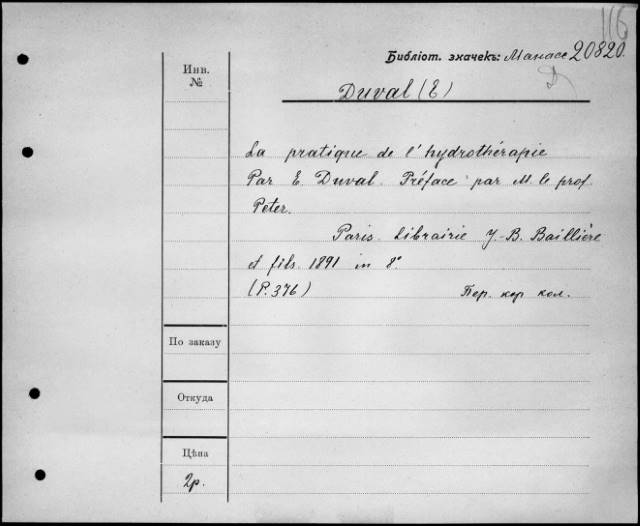 116
Библіот. значекъ: Манассе 20820.
Инв.
№
Duval (E)
La pratique de l'hydrothérapie
Par E. Duval. Préface par M. le prof.
Peter.
Paris. Librairie J.-B. Baillière
et fils. 1891 in 8°
(P. 376) Пер. кор. кол.
По заказу
Откуда
Цѣна
2р.